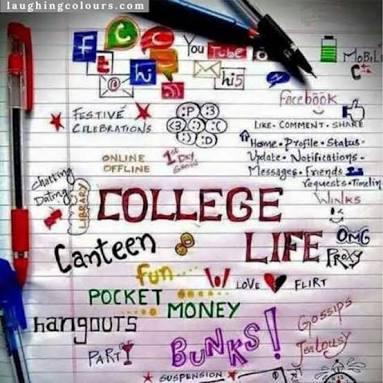 laughingcolours.com
f
You Tube
t
hi
hi5
MoBiLe
facebook
FESTIVE
CELEBRATIONS
LIKE · COMMENT · SHARE
Home · Profile · Status ·
Update · Notifications ·
Messages · Friends
requests · Timeline
ONLINE
OFFLINE
1st DAY
Chatting
Dating
LIBRARY
COLLEGE
LIFE
WINKS
OMG
PROXY
Canteen
fun....
LOVE FLIRT
POCKET
MONEY
Gossips
hangouts
BUNKS!
Jealousy
PARTY
SUSPENSION